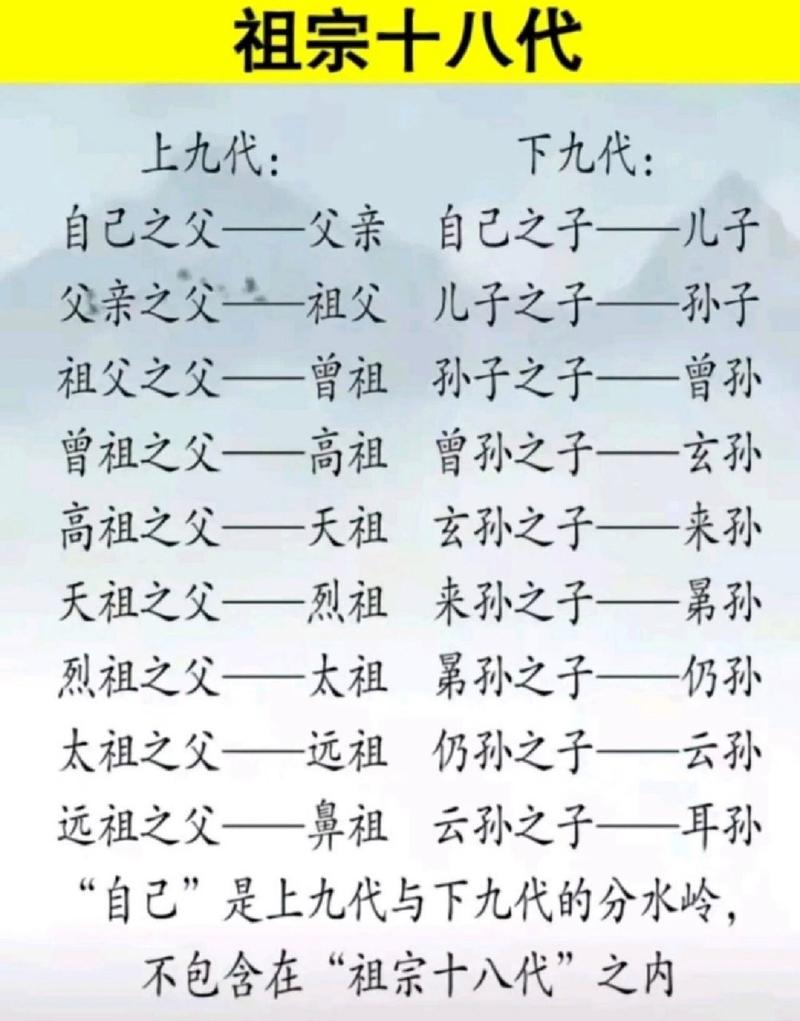 祖宗十八代
上九代：
自己之父——父亲
父亲之父——祖父
祖父之父——曾祖
曾祖之父——高祖
高祖之父——天祖
天祖之父——烈祖
烈祖之父——太祖
太祖之父——远祖
远祖之父——鼻祖
下九代：
自己之子——儿子
儿子之子——孙子
孙子之子——曾孙
曾孙之子——玄孙
玄孙之子——来孙
来孙之子——晜孙
晜孙之子——仍孙
仍孙之子——云孙
云孙之子——耳孙
“自己”是上九代与下九代的分水岭，
不包含在“祖宗十八代”之内